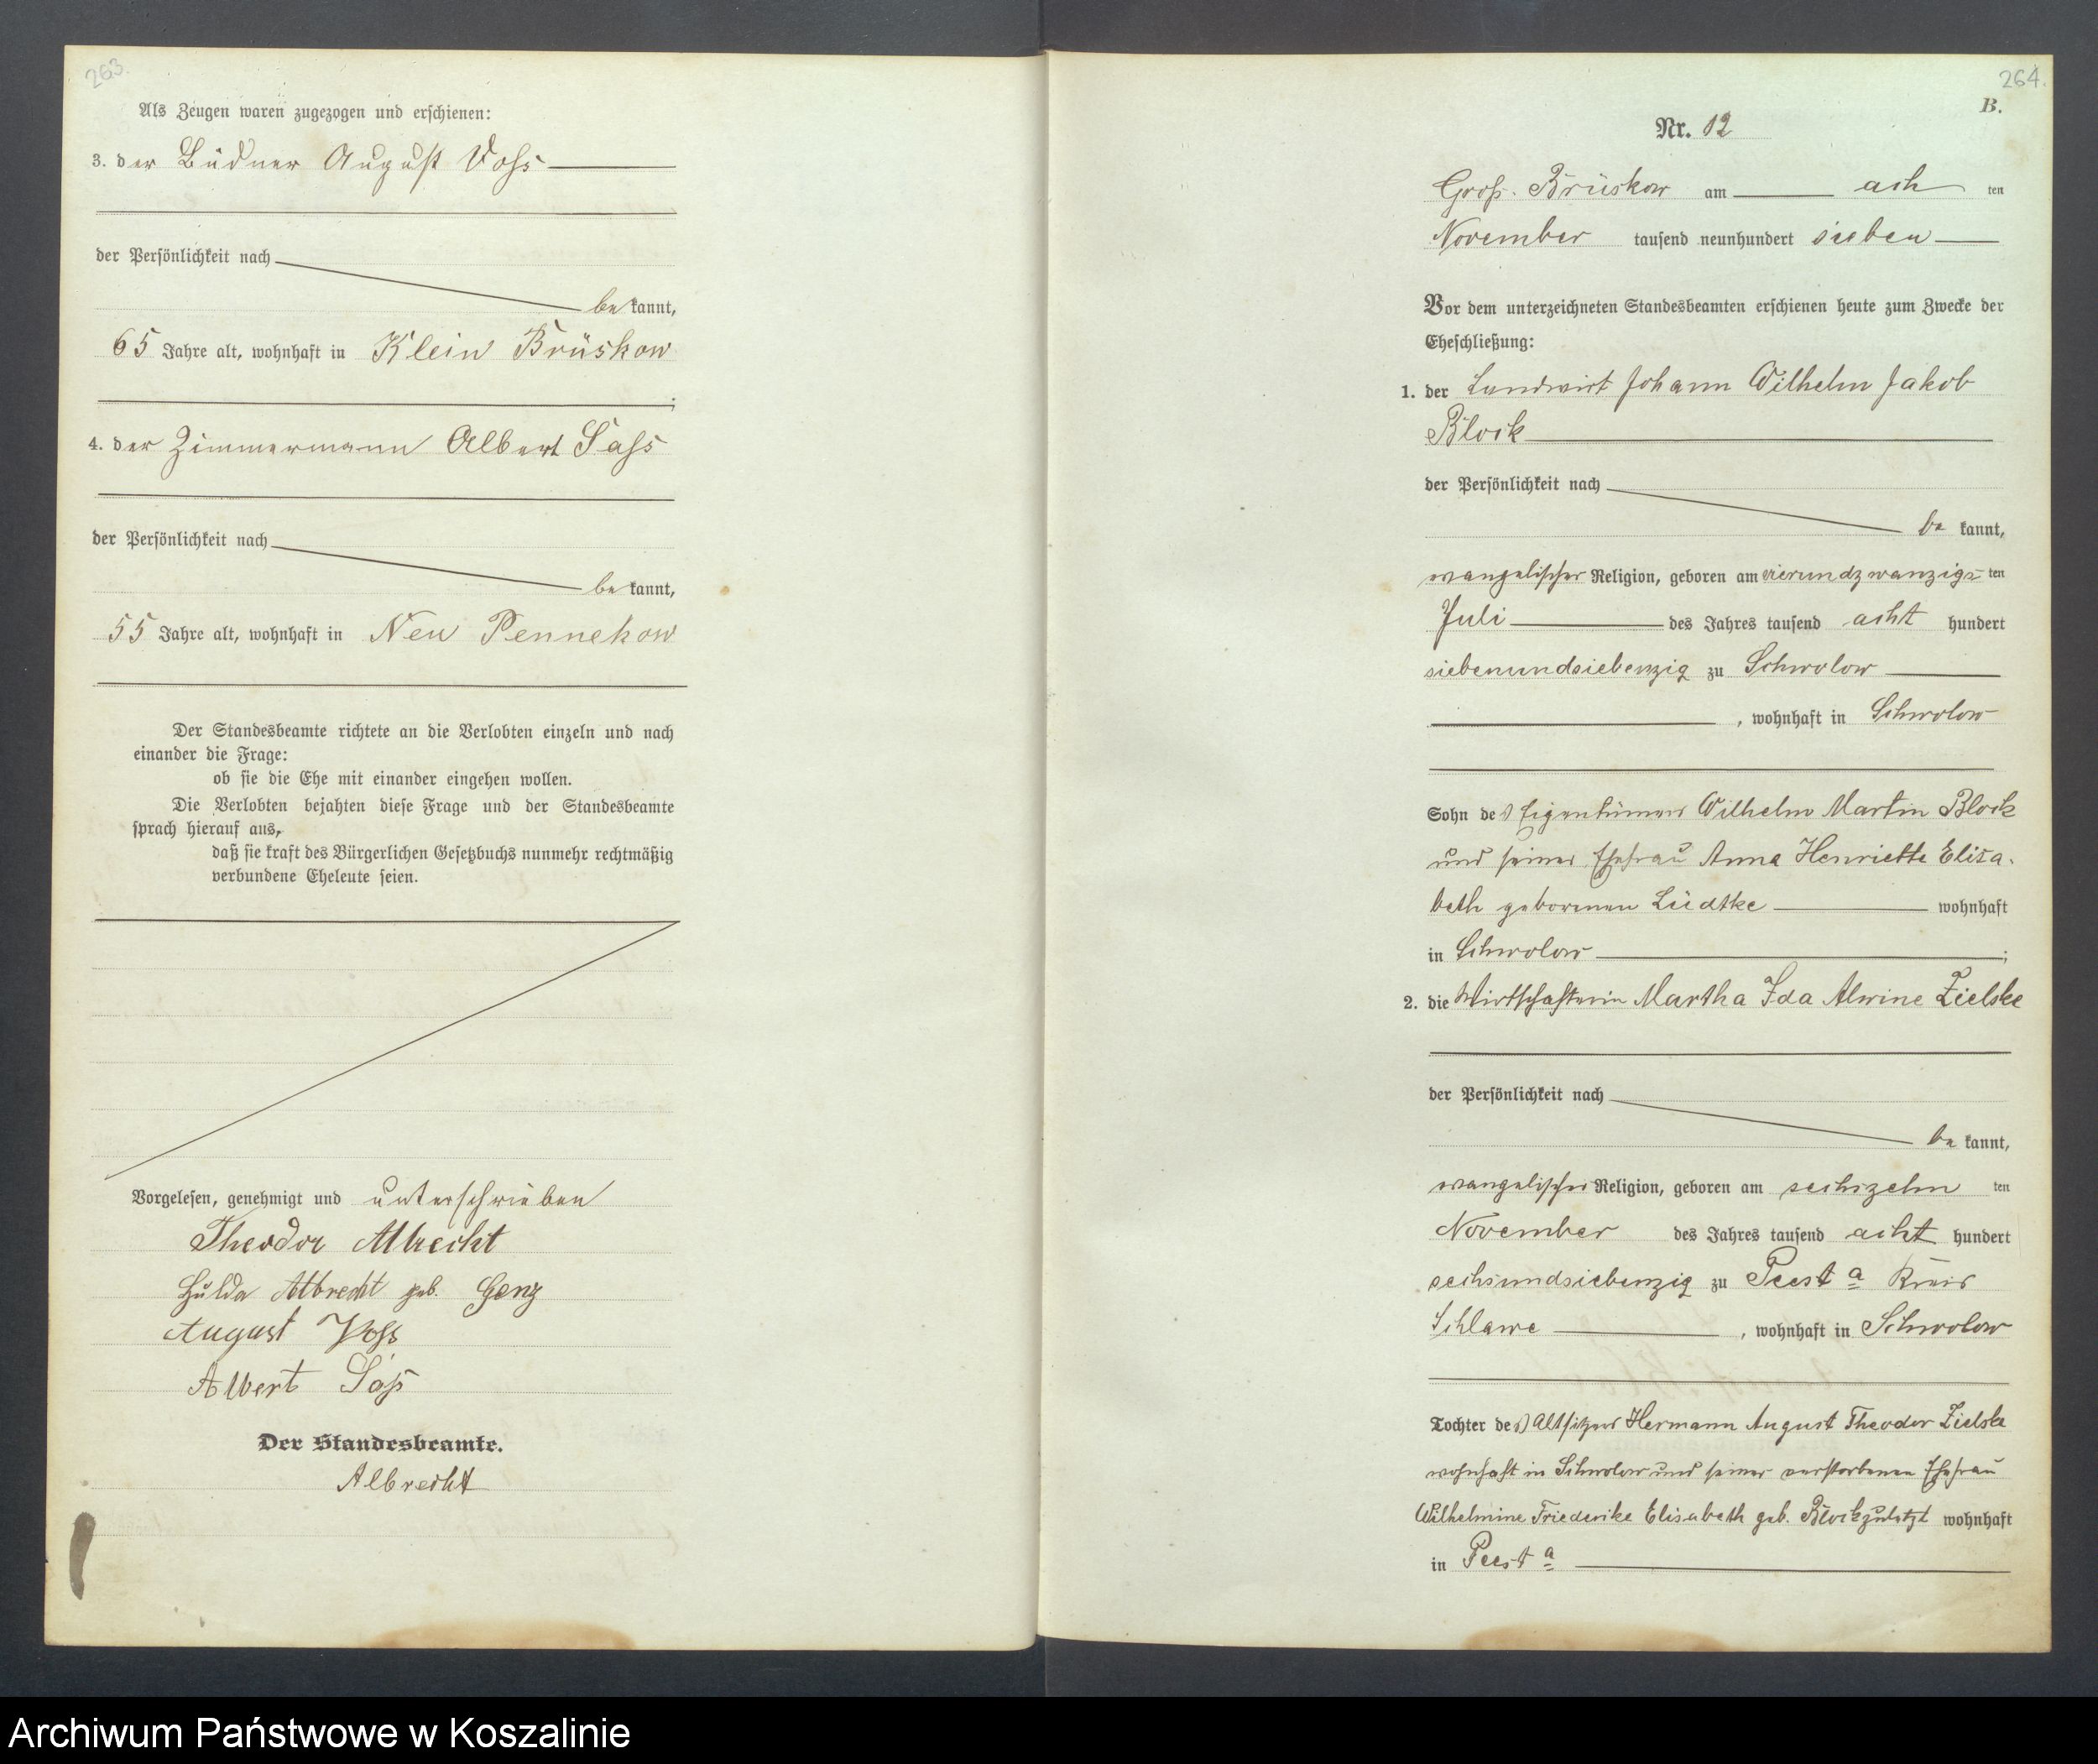 263.
Als Zeugen waren zugezogen und erschienen:
3. der Büdner August Voss
der Persönlichkeit nach
bekannt,
65 Jahre alt, wohnhaft in Klein Brüskow
;
4. der Zimmermann Albert Sass
der Persönlichkeit nach
bekannt,
55 Jahre alt, wohnhaft in Neu Pennekow
Der Standesbeamte richtete an die Verlobten einzeln und nach
einander die Frage:
ob sie die Ehe mit einander eingehen wollen.
Die Verlobten bejahten diese Frage und der Standesbeamte
sprach hierauf aus,
daß sie kraft des Bürgerlichen Gesetzbuchs nunmehr rechtmäßig
verbundene Eheleute seien.
Vorgelesen, genehmigt und unterschrieben
Theodor Albrecht
Hulda Albrecht geb. Genz
August Voss
Albert Saß
Der Standesbeamte.
Albrecht
264.
B.
Nr. 12
Groß Brüskow am ach ten
November tausend neunhundert sieben
Vor dem unterzeichneten Standesbeamten erschienen heute zum Zwecke der
Eheschließung:
1. der Landwirt Johann Wilhelm Jakob
Block
der Persönlichkeit nach
bekannt,
evangelischer Religion, geboren am vierundzwanzigs ten
Juli des Jahres tausend acht hundert
siebenundsiebenzig zu Schwolow
, wohnhaft in Schwolow
Sohn des Eigentümers Wilhelm Martin Block
und seiner Ehefrau Anna Henriette Elisa-
beth geborenen Lüdtke wohnhaft
in Schwolow ;
2. die Wirtschafterin Martha Ida Alwine Zielske
der Persönlichkeit nach
bekannt,
evangelischer Religion, geboren am sechszehn ten
November des Jahres tausend acht hundert
sechsundsiebenzig zu Peest a Kreis
Schlawe , wohnhaft in Schwolow
Tochter des Altsitzers Hermann August Theodor Zielske
wohnhaft in Schwolow und seiner verstorbenen Ehefrau
Wilhelmine Friederike Elisabeth geb. Block zuletzt wohnhaft
in Peest a
Archiwum Państwowe w Koszalinie